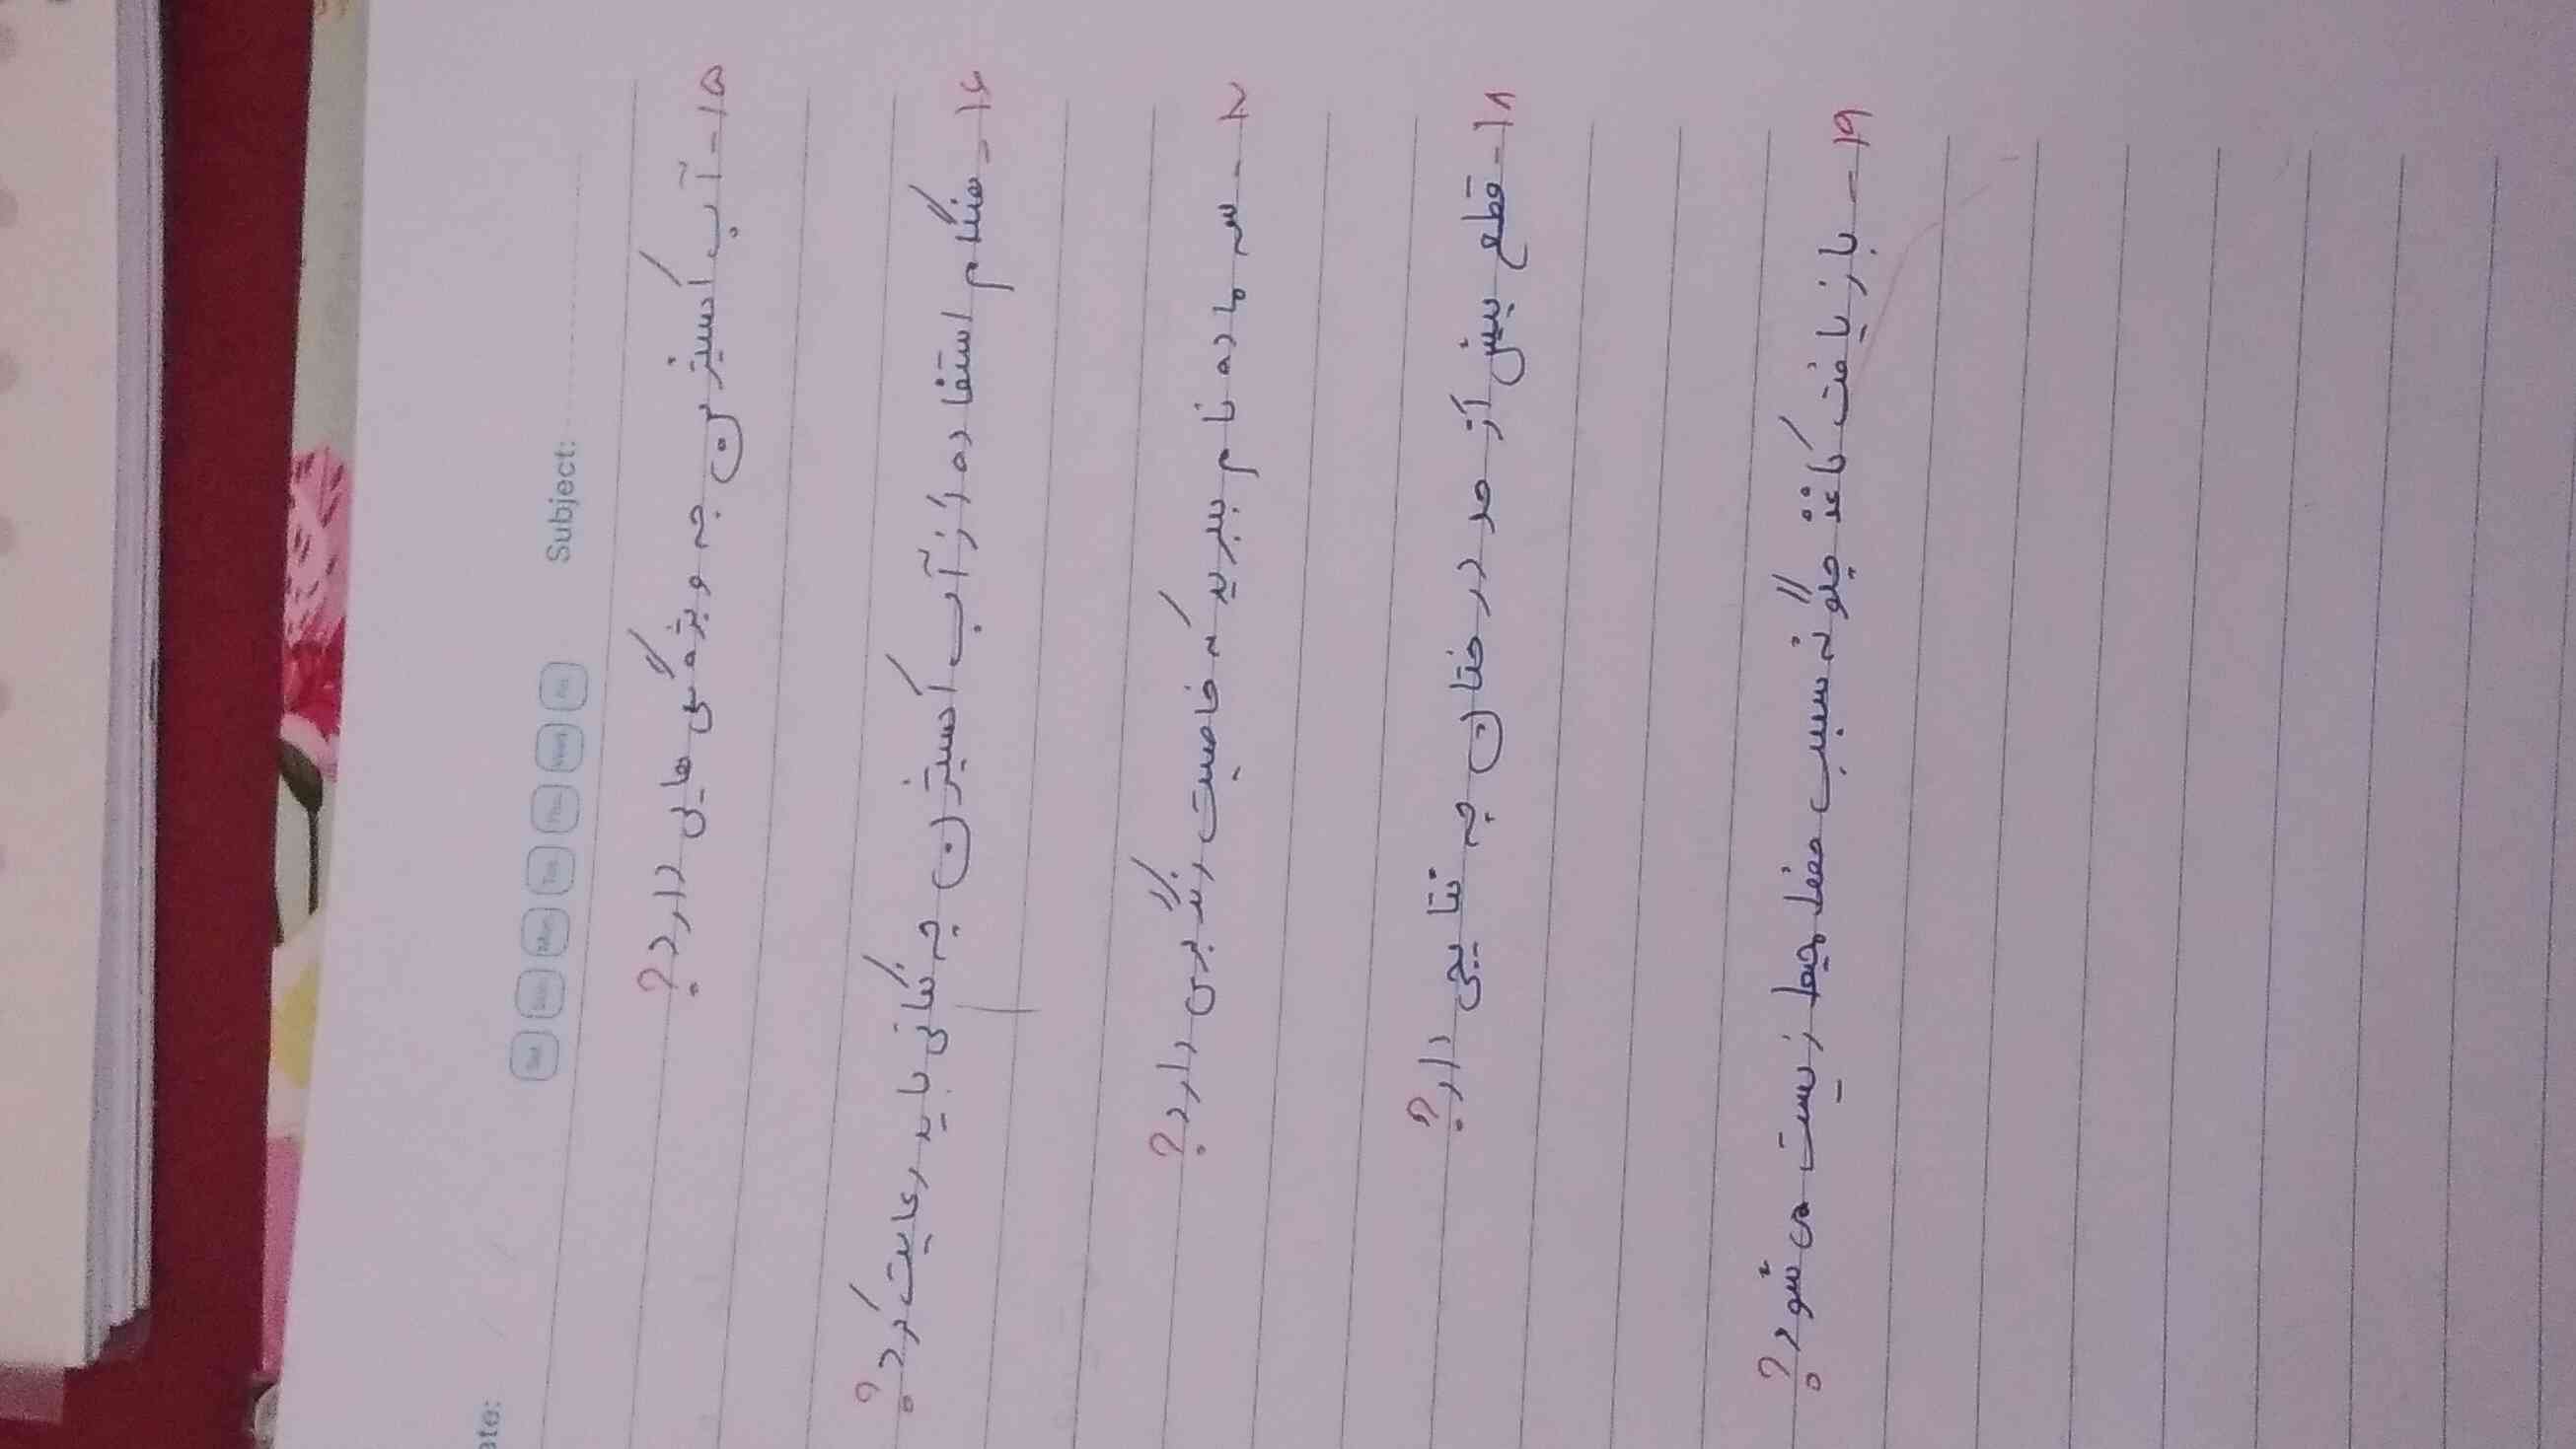 Subject:
Date:
۱۵- آب اکسیژن چه ویژه گی هایی دارد؟
۱۶- هنگام استفاده از آب اکسیژن چه نکاتی باید رعایت کرد؟
۱۷- سه ماده نام ببرید که خاصیت رنگ بری دارد؟
۱۸- قطع بیش از حد درختان چه نتایجی دار؟
۱۹- بازیافت کاغذ چگونه سبب حفظ محیط زیست می شود؟